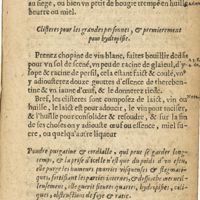 au siege, ou bien vn petit de bougie trempé en huille,
beurre ou miel.
Clisteres pour les grandes personnes, & premierement
pour hydropisie.
Prenez chopine de vin blanc, faites bouillir dedans
pour vn sol de sené, vn peu de racine de glaieul, d'v
sope & racine de persil, cela estant fait & coulé, vo9
y adiousterez douze gouttes d'essence de therebentine
& vn iaune d'œuf, & le donnerez tiede.
Bref, les clisteres sont composez de laict, vin ou
huille, le laict est pour adoucir, le vin pour nourrir,
& l'huille pour consolider & resoudre, & sur la fin
de ses choses on y adiouste œuf ou essence, miel sucre,
ou quelqu'autre liqueur
Poudre purgatiue & cordialle, qui peut se garder long-
temps, & la prise d'icelle n'est que du poids d'vn escu,
elle purge les humeurs pourries visqueuses & flegmatiques,
fortifiant les parties interieures, & desseiche merueilleusement,
elle guerit fieures quartes, hydropisies, coliques,
obstructions de foye & ratte.